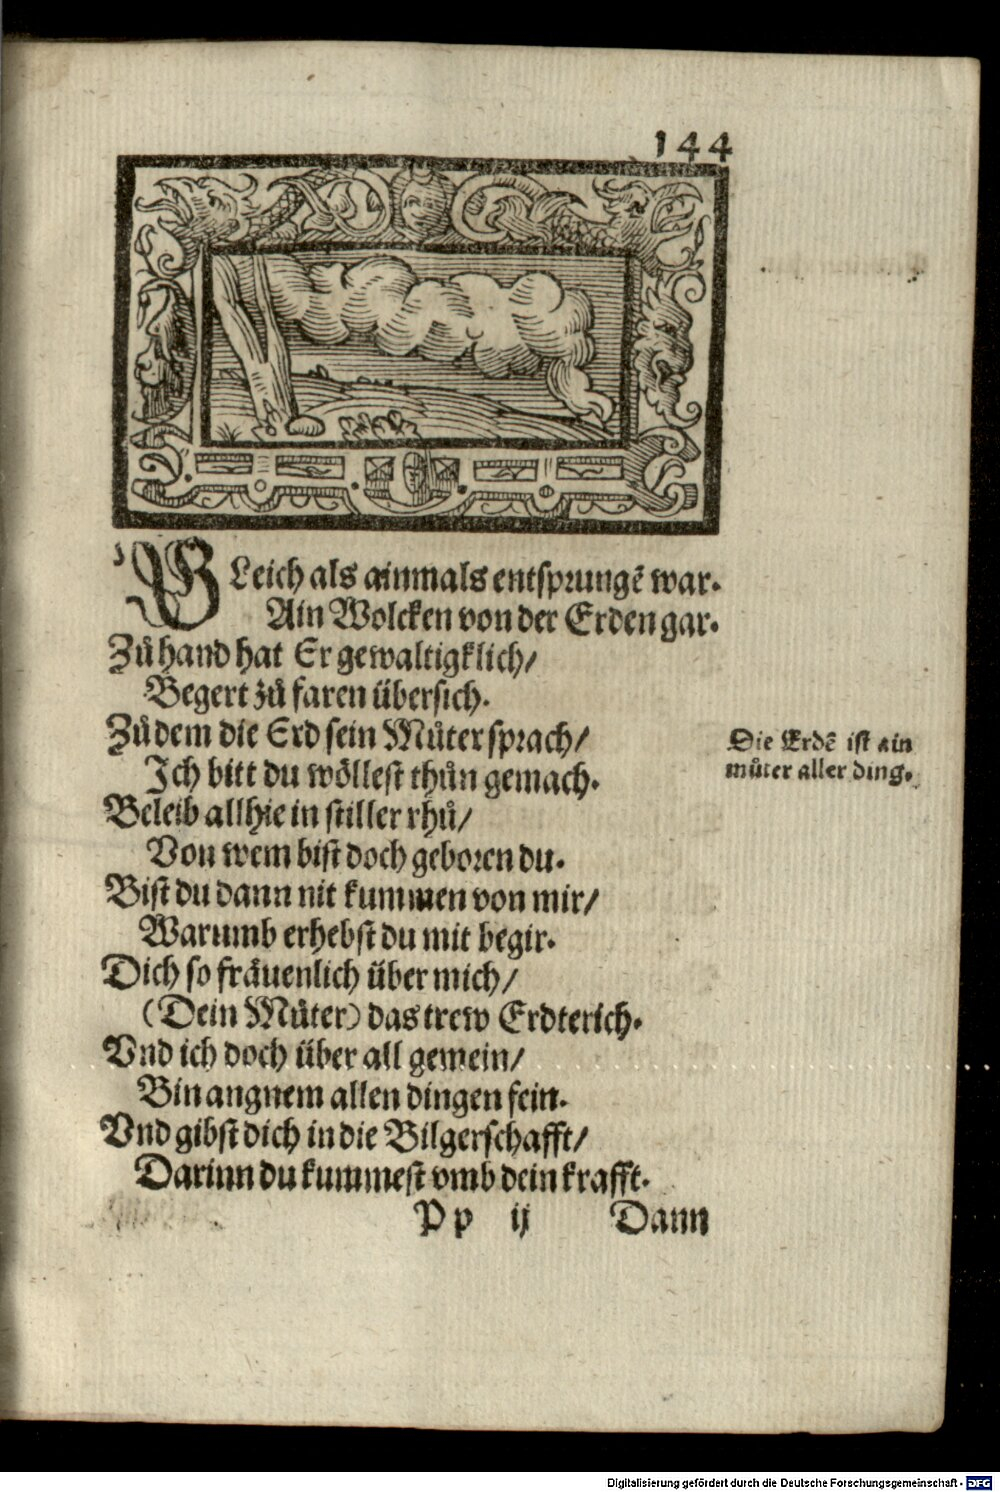 144
GLeich als ainmals entsprungē war.
Ain Wolcken von der Erden gar.
Zů hand hat Er gewaltigklich/
Begert zů faren übersich.
Zů dem die Erd sein Můter sprach/
Ich bitt du wöllest thůn gemach.
Beleib allhie in stiller rhů/
Von wem bist doch geboren du.
Bist du dann nit kummen von mir/
Warumb erhebst du mit begir.
Dich so fräuenlich über mich/
(Dein Můter) das trew Erdterich.
Vnd ich doch über all gemein/
Bin angnem allen dingen fein.
Vnd gibst dich in die Bilgerschafft/
Darinn du kummest vmb dein krafft.
Die Erdē ist ain
můter aller ding.
Pp ij Dann
Digitalisierung gefördert durch die Deutsche Forschungsgemeinschaft - DFG